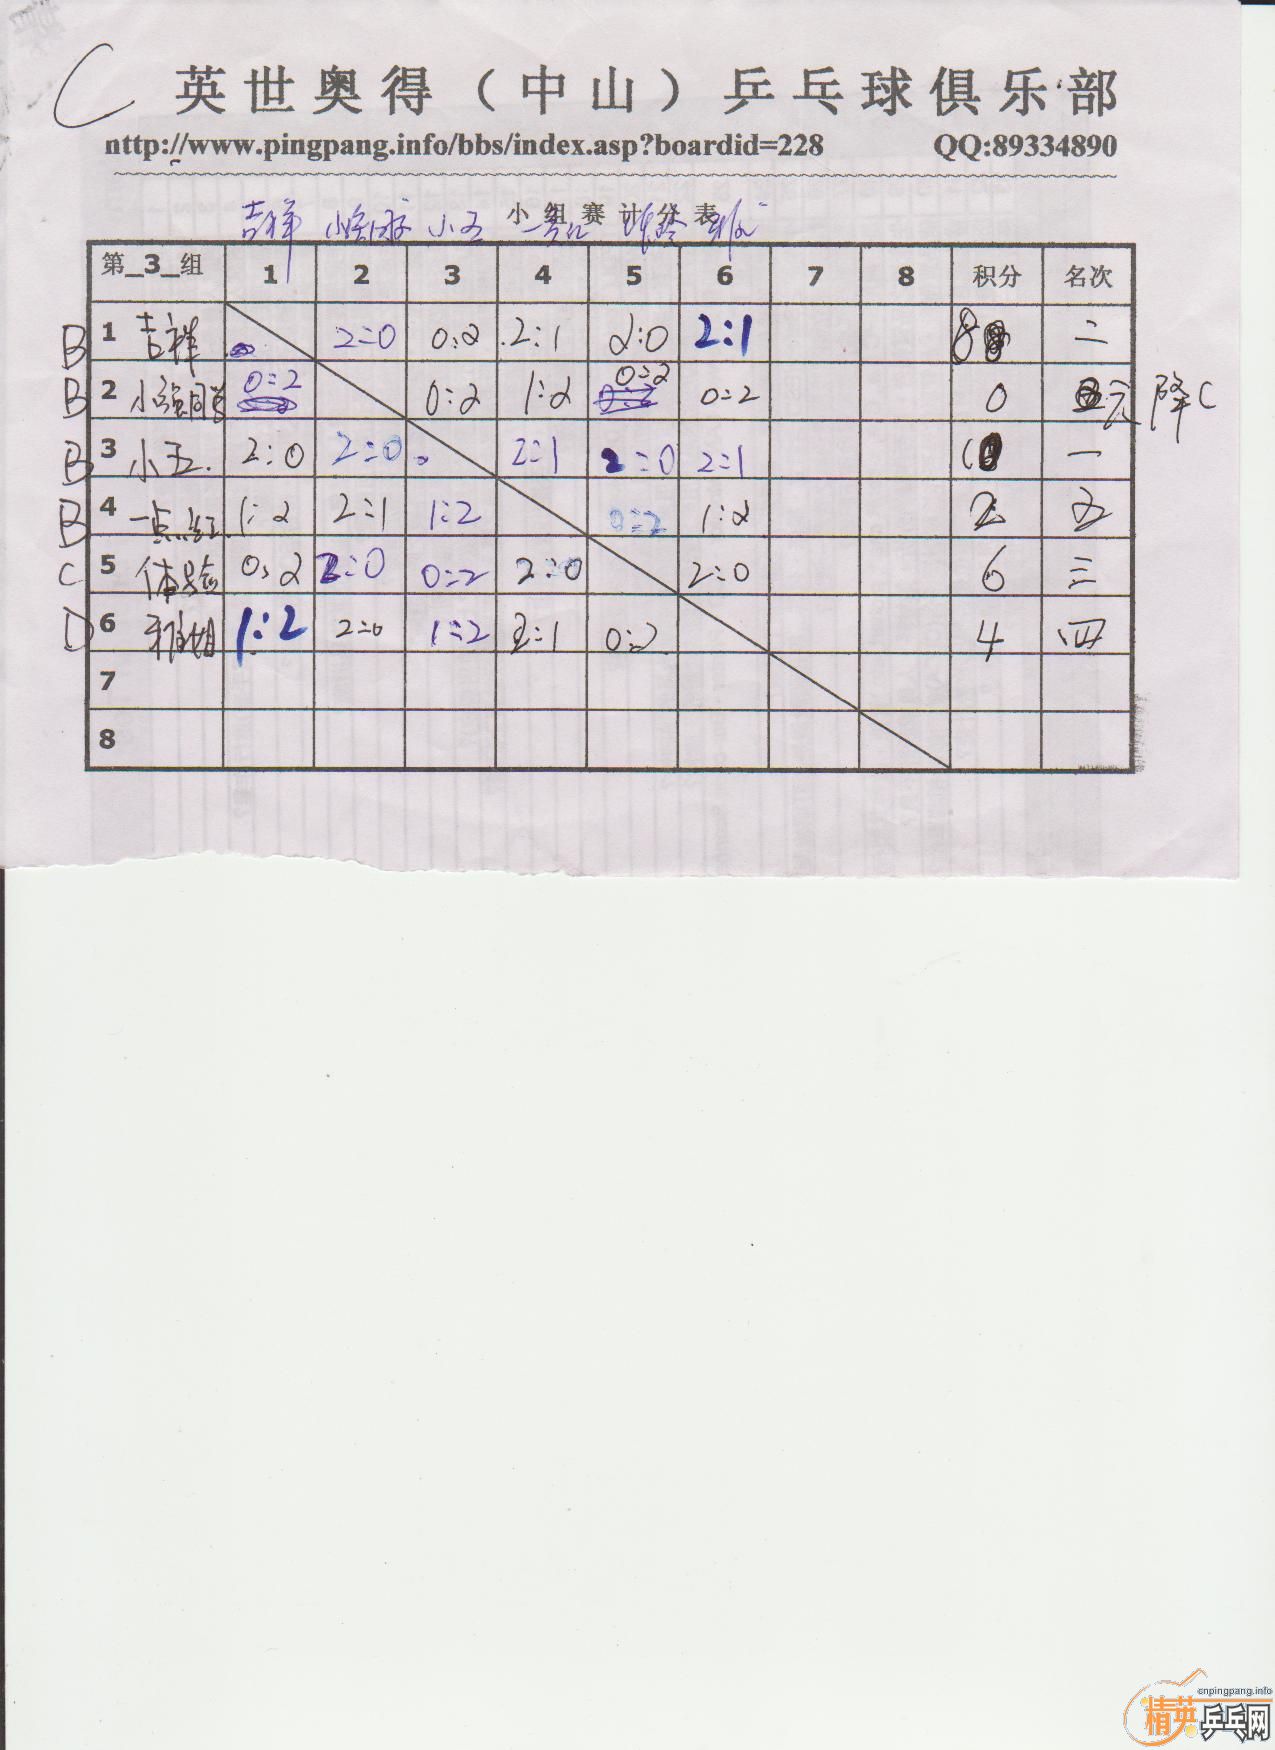 C
英世奥得（中山）乒乓球俱乐部
http://www.pingpang.info/bbs/index.asp?boardid=228 QQ:89334890
小组赛计分表
吉祥 小强同学 小五
第_3_组 1 2 3 4 5 6 7 8 积分 名次
B 1 吉祥 2:0 0:2 2:1 2:0 2:1 8 二
B 2 小强同学 0:2 0:2 1:2 0:2 0:2 0 六 降C
B 3 小五. 2:0 2:0 2:1 2:0 2:1 10 一
B 4 一点红. 1:2 2:1 1:2 0:2 1:2 2 五
C 5 体验 0:2 2:0 0:2 2:0 2:0 6 三
D 6 雅姐 1:2 2:0 1:2 2:1 0:2 4 四
7
8
cnpingpang.info
精英乒乓网